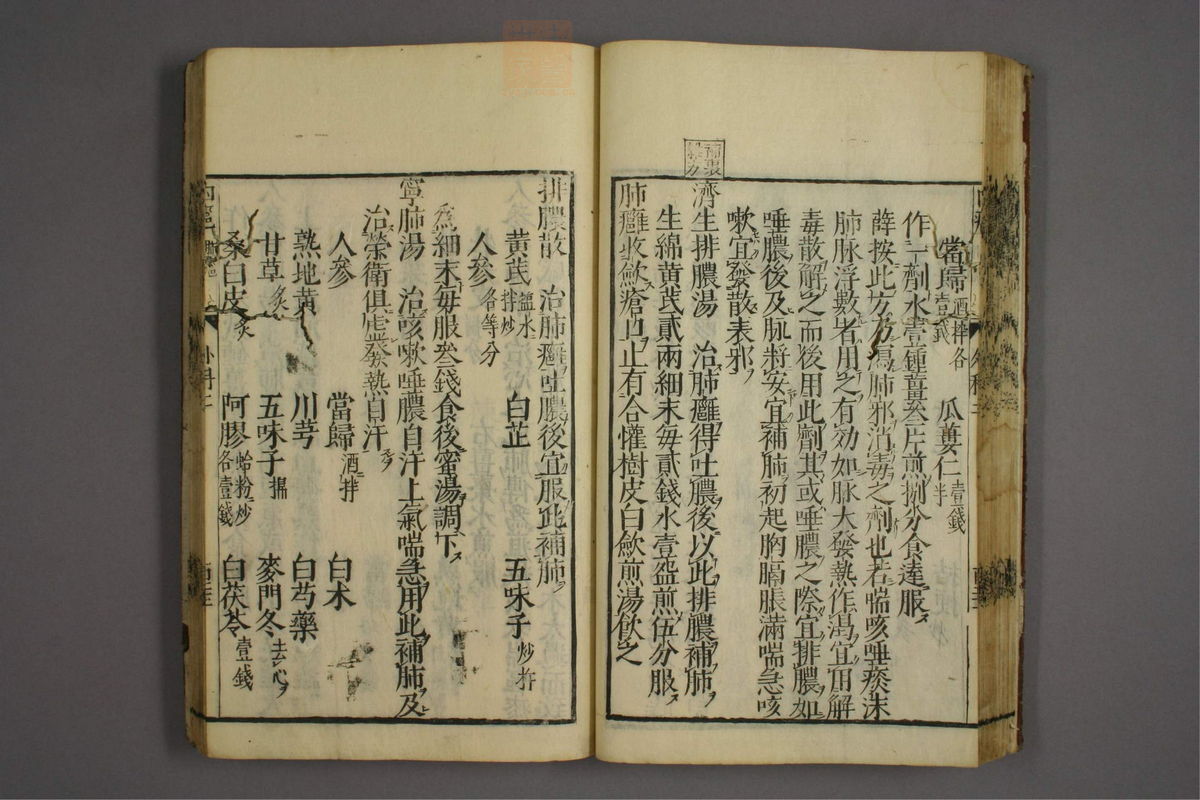 當歸酒拌各壹錢 瓜蔞仁壹錢半
作一劑水壹鍾薑叁片煎捌分食遠服
薛按此方乃瀉肺邪消毒之劑也若喘咳唾痰沫
肺脉浮數者用之有効如脉大發熱作渴宜用解
毒散解之而後用此劑其或唾膿之際宜排膿如
唾膿後及脉將安宜補肺初起胸膈脹滿喘急咳
嗽宜發散表邪
濟生排膿湯 治肺癰得吐膿後以此排膿補肺
生綿黄芪貳兩細末每貳錢水壹盌煎伍分服
肺癰收斂瘡口止有合懽樹皮白斂煎湯飲之
排膿散 治肺癰吐膿後宜服此補肺
黄芪鹽水拌炒 白芷 五味子炒杵
人參各等分
爲細末每服叁錢食後蜜湯調下
寧肺湯 治咳嗽唾膿自汗上氣喘急用此補肺及
治榮衛俱虛發熱自汗
人參 當歸酒拌 白朮
熟地黄 川芎 白芍藥
甘草炙 五味子搗 麥門冬去心
桑白皮炙 阿膠蛤粉炒各壹錢 白茯苓壹錢